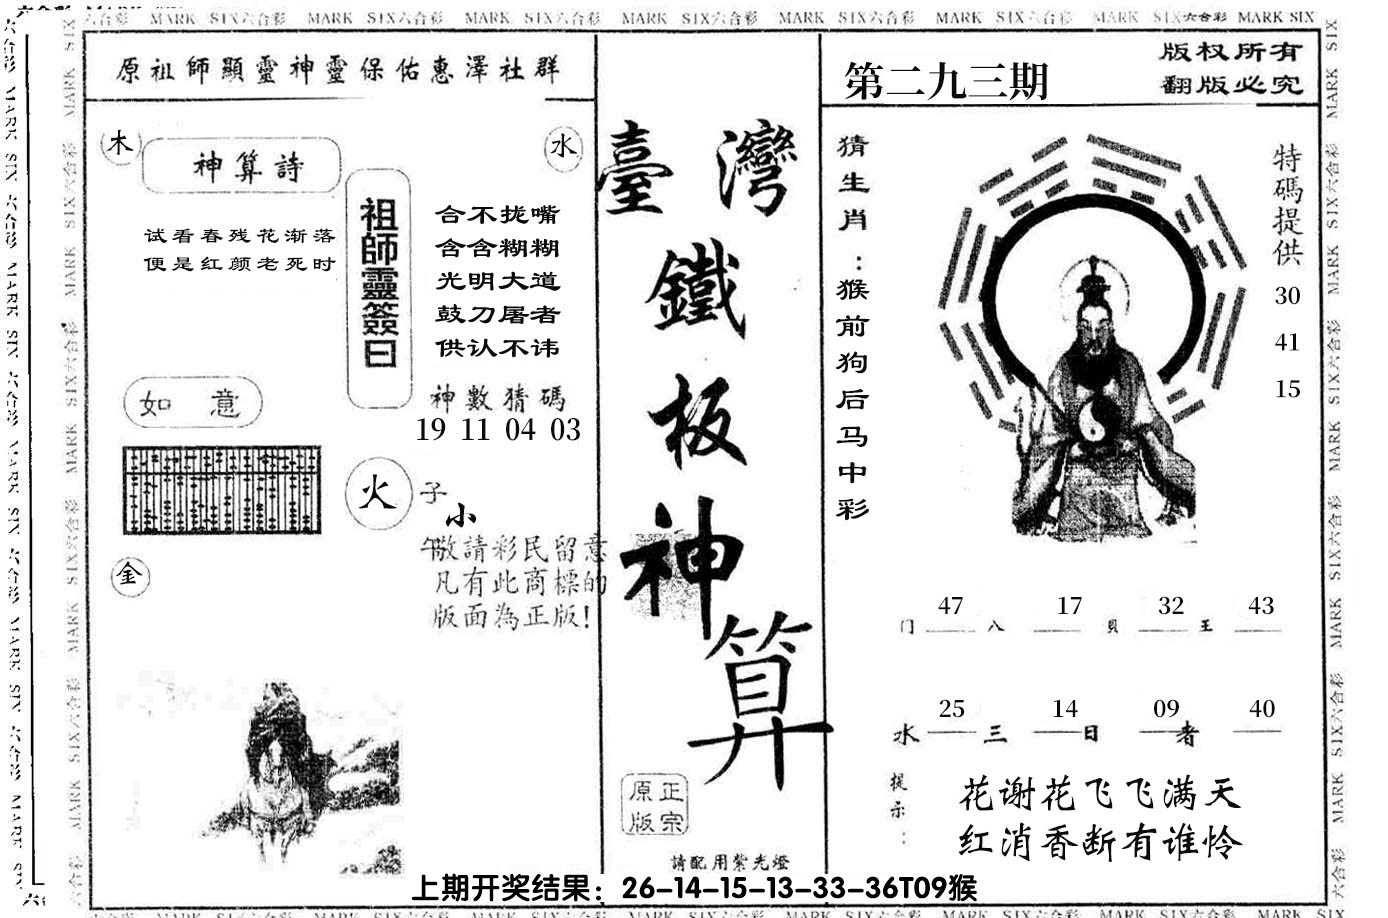 六合彩 MARK SIX六合彩 MARK SIX六合彩 MARK SIX六合彩 MARK SIX六合彩 MARK SIX六合彩 MARK SIX六合彩 MARK SIX六合彩 MARK SIX
原祖師顯靈神靈保佑惠澤社群
木
神算詩
水
试看春残花渐落
便是红颜老死时
祖師靈簽曰
合不拢嘴
含含糊糊
光明大道
鼓刀屠者
供认不讳
神數猜碼
19 11 04 03
如 意
火
子
小
午
敬請彩民留意
凡有此商標的
版面為正版!
金
臺灣
鐵
板
神
算
正宗
原版
請配用紫光燈
第二九三期
版权所有
翻版必究
猜生肖:猴前狗后马中彩
特碼提供
30
41
15
47 17 32 43
门 八 貝 王
25 14 09 40
水 三 日 者
提示:
花谢花飞飞满天
红消香断有谁怜
上期开奖结果：26-14-15-13-33-36T09猴